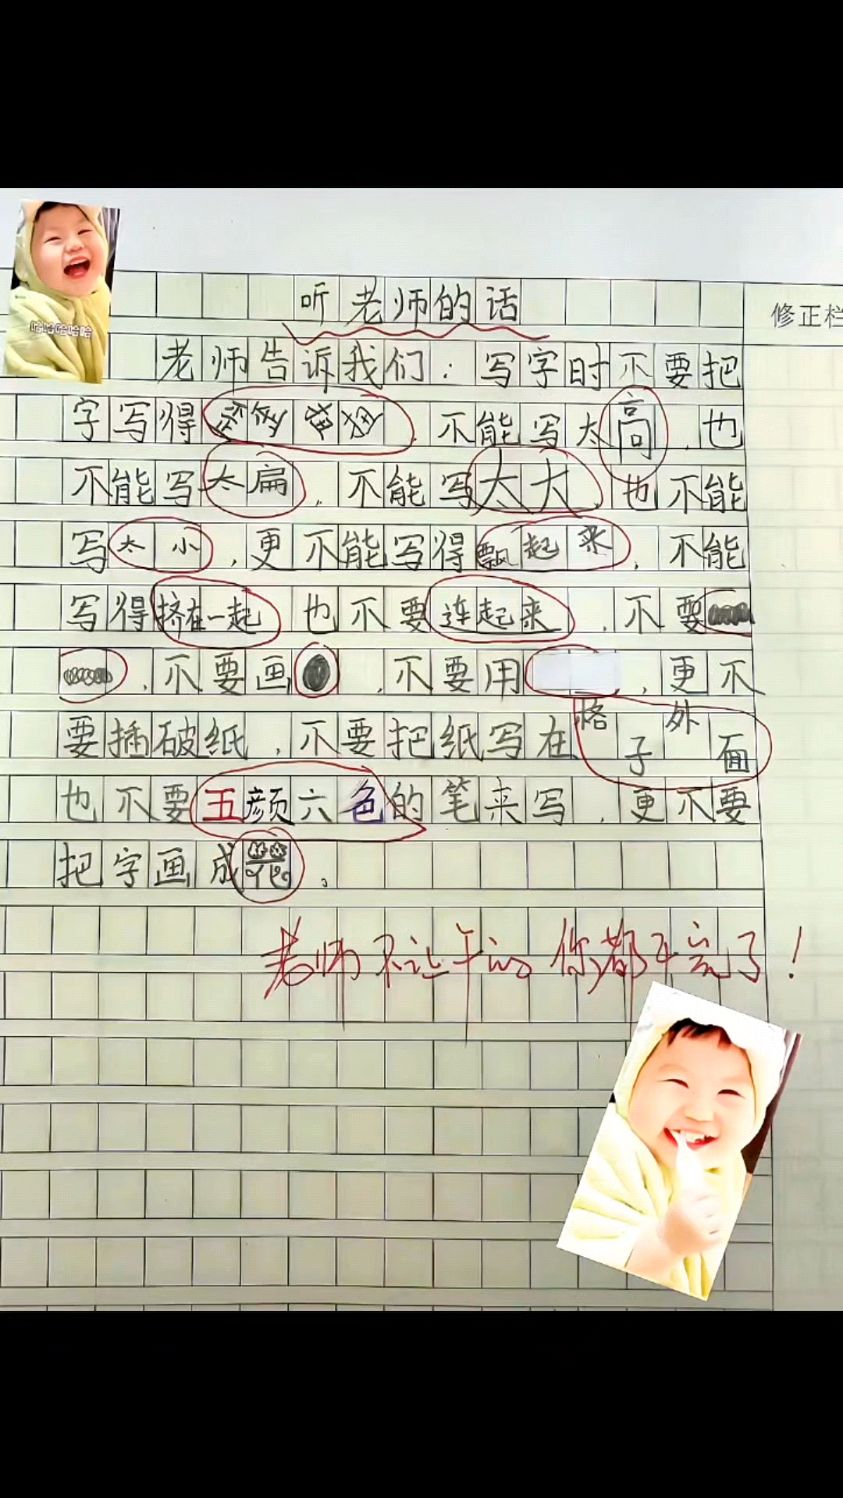 听老师的话
修正栏
老师告诉我们：写字时不要把
字写得歪歪扭扭，不能写太高，也
不能写太扁，不能写太大，也不能
写太小，更不能写得飘起来，不能
写得挤在一起，也不要连起来，不要
，不要画，不要用，更不
要插破纸，不要把纸写在格子外面
也不要五颜六色的笔来写，更不要
把字画成花。
老师不让干的你都干完了！
哈哈哈哈哈